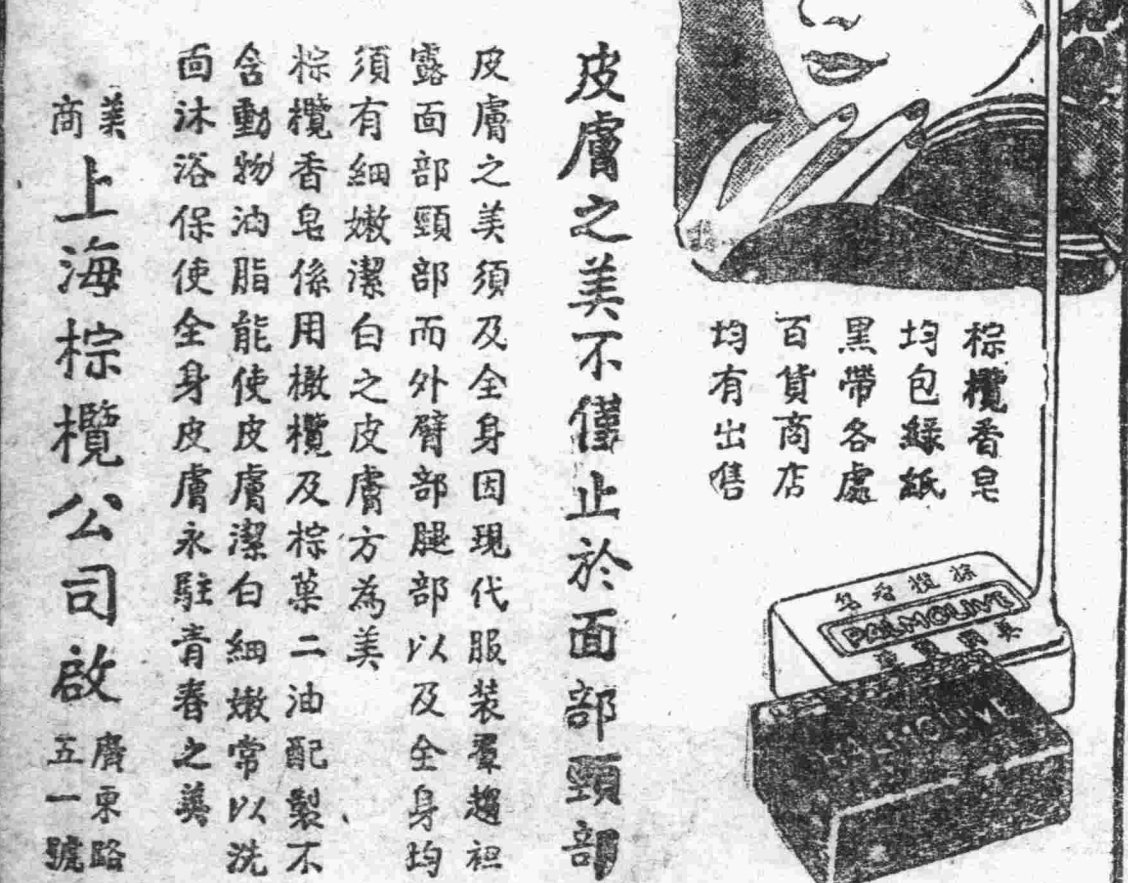 棕欖香皂
均包綠紙
黑帶各處
百貨商店
均有出售
棕欖香皂
PALMOLIVE
PALMOLIVE
皮膚之美不僅止於面部頸部
皮膚之美須及全身因現代服裝羣趨袒
露面部頸部而外臂部腿部以及全身均
須有細嫩潔白之皮膚方為美
棕欖香皂係用橄欖及棕菓二油配製不
含動物油脂能使皮膚潔白細嫩常以洗
面沐浴保使全身皮膚永駐青春之美
美商
上海棕欖公司啟
廣東路
五一號